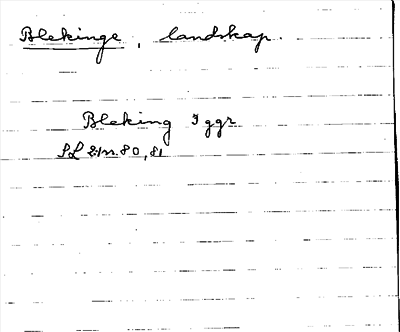 Blekinge, landskap.
Bleking I ggr
SL 21 nr. 80, 81